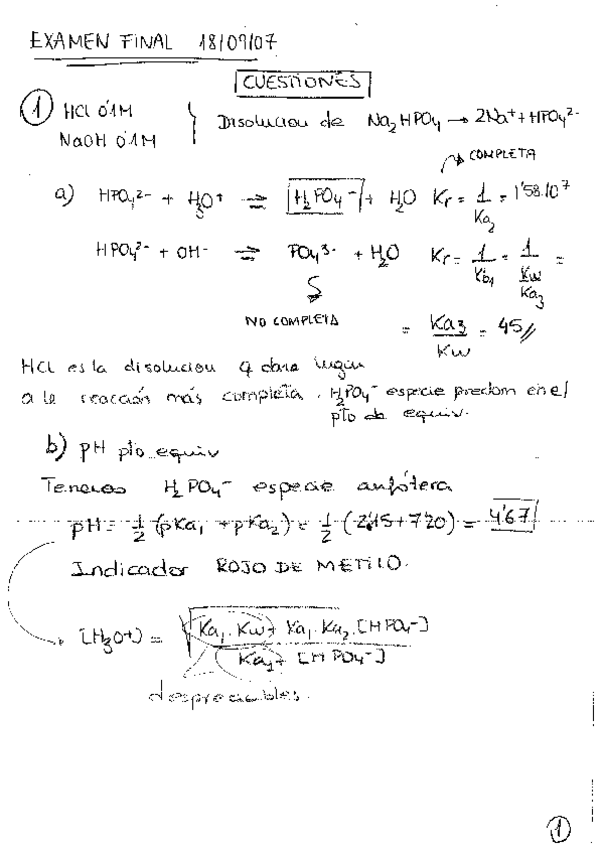 EXAMEN FINAL 18/09/07
CUESTIONES
① HCl 0'1M
NaOH 0'1M
Disolucion de Na2HPO4 → 2Na+ + HPO4 2-
COMPLETA
a) HPO4 2- + H3O+ ⇌ H2PO4- + H2O Kr = 1/Ka2 = 1'58.10^7
HPO4 2- + OH- ⇌ PO4 3- + H2O Kr = 1/Kb1 = 1/(Kw/Ka3) =
NO COMPLETA
= Ka3/Kw = 45//
HCl es la disolucion q dara lugar
a la reacción más completa. H2PO4- especie predom en el
pto de equiv.
b) pH pto equiv
Tenemos H2PO4- especie anfótera
pH = 1/2 (pKa1 + pKa2) = 1/2 (2'15 + 7'20) = 4'67
Indicador ROJO DE METILO.
[H3O+] = √(Ka1.Kw + Ka1.Ka2.[HPO4-] / Ka1 + [HPO4-])
despreciables.
①